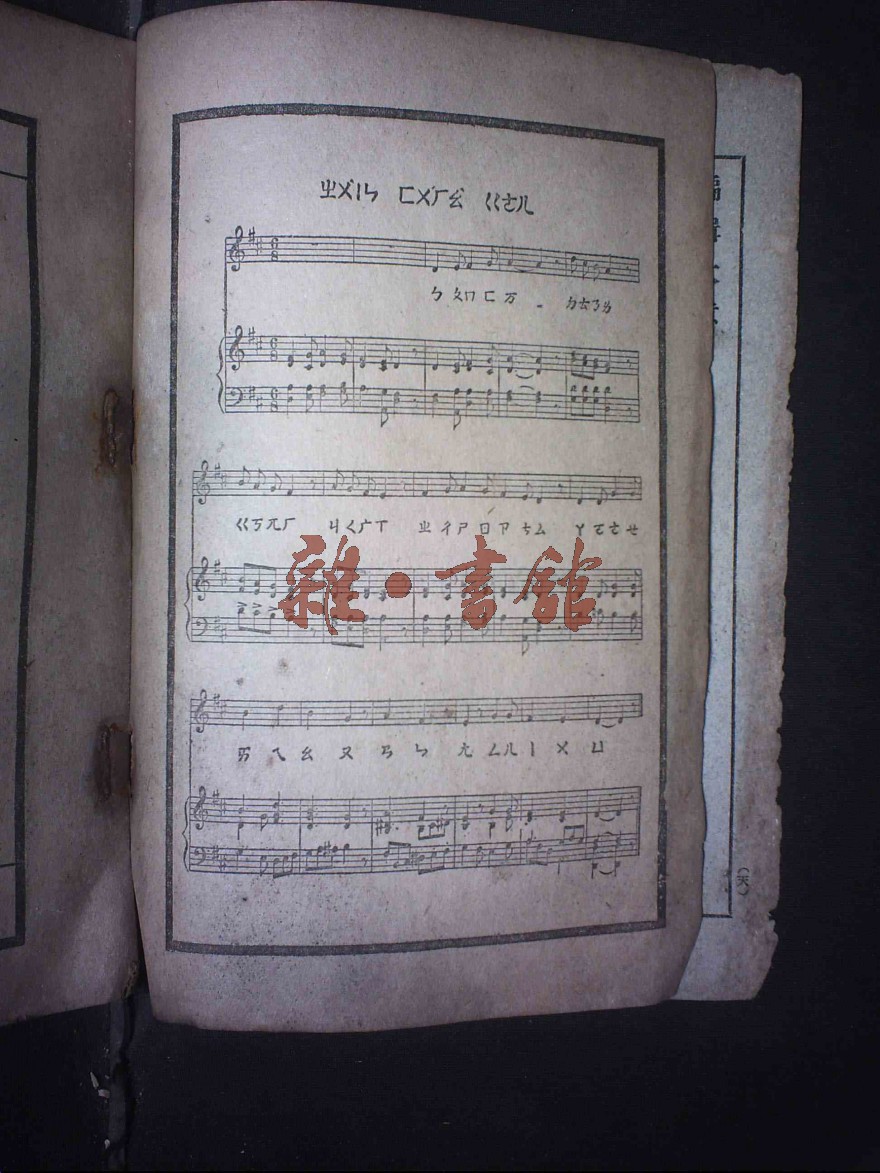 ㄓㄨㄧㄣ ㄈㄨㄏㄠ ㄍㄜㄦ
ㄅ ㄆㄇ ㄈ ㄪ - ㄉㄊㄋㄌ
ㄍㄎㄫㄏ ㄐㄑㄬㄒ ㄓ ㄔㄕ ㄖ ㄗ ㄘㄙ ㄚ ㄛㄜㄝ
雜·書館
ㄞ ㄟ ㄠ ㄡ ㄢ ㄣ ㄤ ㄥㄦㄧ ㄨ ㄩ